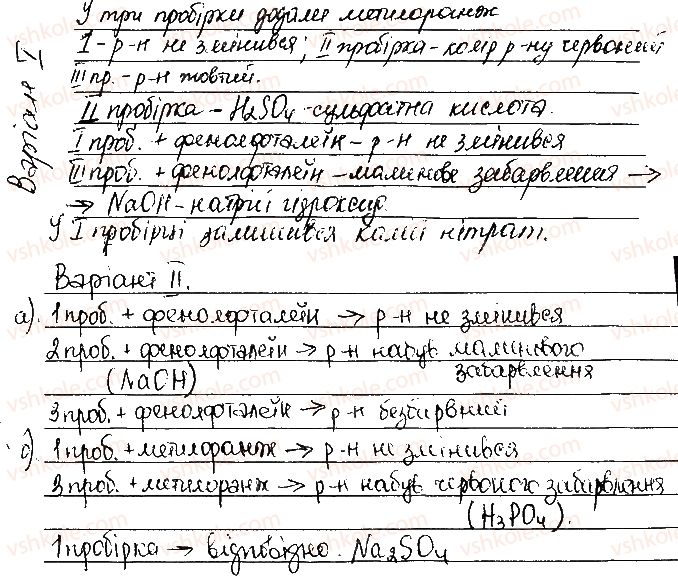 Варіант I
У три пробірки додали метилоранж
I - р-н не змінився; II пробірка - колір р-ну червоний
III пр. - р-н жовтий.
II пробірка - H₂SO₄ - сульфатна кислота.
I проб. + фенолфталеїн - р-н не змінився
III проб. + фенолфталеїн - малинове забарвлення →
→ NaOH - натрій гідроксид.
У I пробірці залишився калій нітрат.
Варіант II.
а). 1 проб. + фенолфталеїн → р-н не змінився
2 проб. + фенолфталеїн → р-н набув малинового
(NaOH) забарвлення
3 проб. + фенолфталеїн → р-н безбарвний
б). 1 проб. + метилоранж → р-н не змінився
3 проб. + метилоранж → р-н набув червоного забарвлення
(H₃PO₄).
1 пробірка → відповідно Na₂SO₄